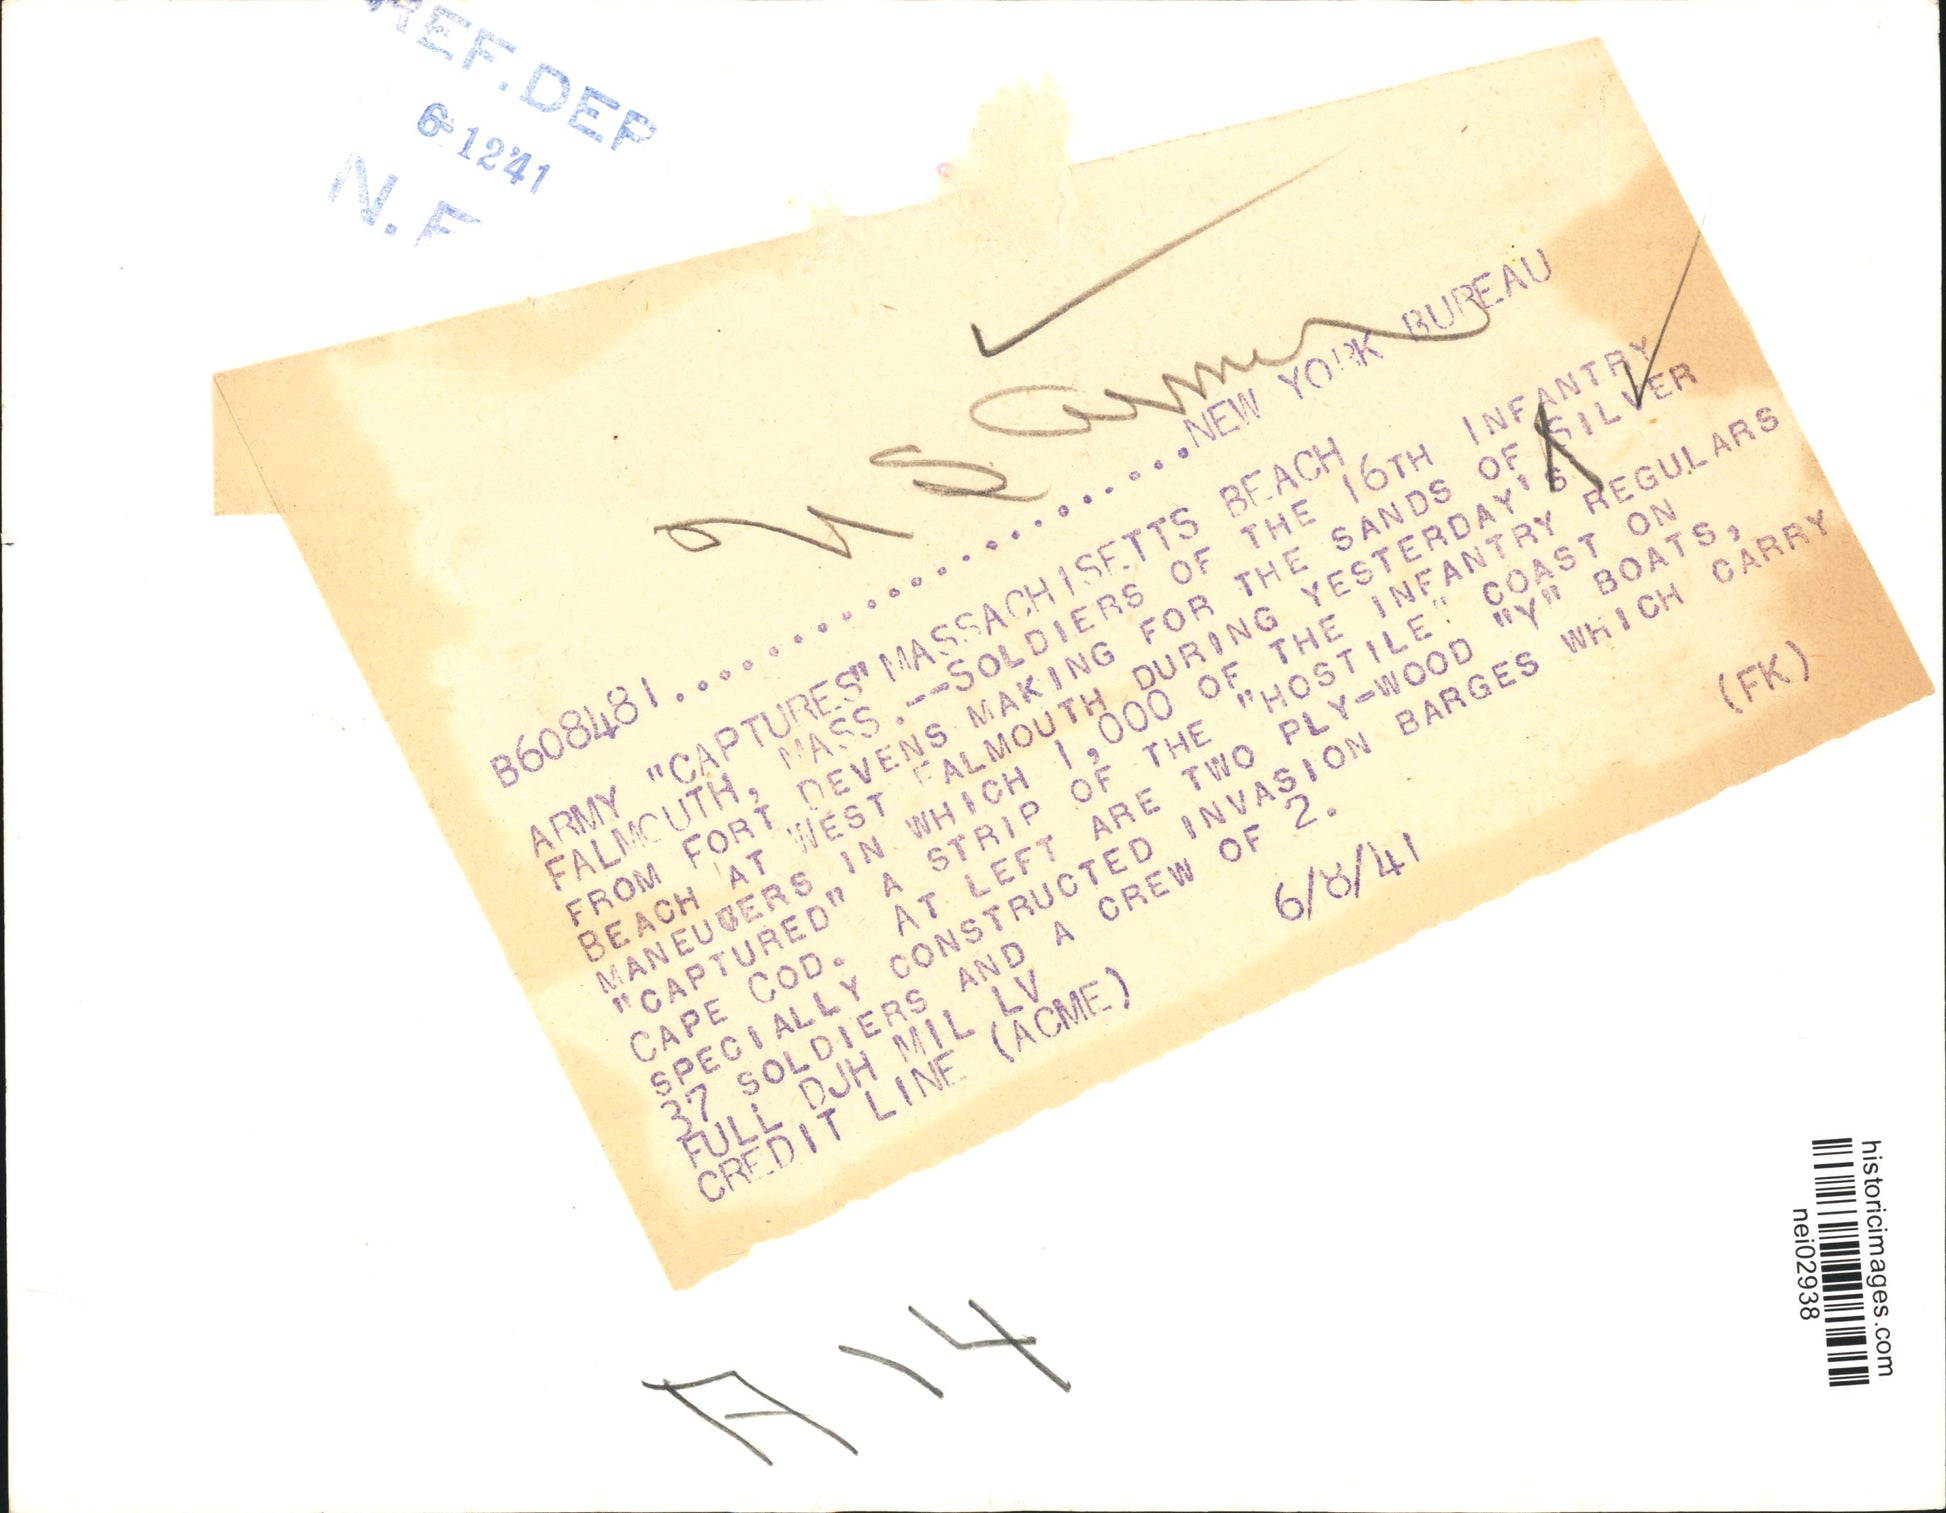 REF. DEP
6-12'41
N. F
B608481........................NEW YORK BUREAU
ARMY "CAPTURES" MASSACHISETTS BEACH
FALMOUTH, MASS.--SOLDIERS OF THE 16TH INFANTRY
FROM FORT DEVENS MAKING FOR THE SANDS OF SILVER
BEACH AT WEST FALMOUTH DURING YESTERDAY'S
MANEUBERS IN WHICH 1,000 OF THE INFANTRY REGULARS
"CAPTURED" A STRIP OF THE "HOSTILE" COAST ON
CAPE COD. AT LEFT ARE TWO PLY-WOOD "Y" BOATS,
SPECIALLY CONSTRUCTED INVASION BARGES WHICH CARRY
37 SOLDIERS AND A CREW OF 2. (FK)
FULL DJH MIL LV 6/8/41
CREDIT LINE (ACME)
A-14
historicimages.com
nei02938